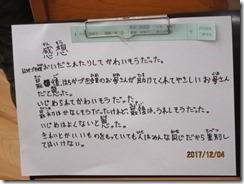 感想
おいだされたりしてかわいそうだった。
最後、はちかづき姫のお母さんが助けてくれてやさしいお母さん
だと思った。
いじめられてかわいそうだった。
最初はかなしそうだったけど、最後は、うれしそうだった。
いじめはよくないと思った。
きれいとかいいものをもっていても人はみんな同じだから差別し
てはいけない。
2017/12/04